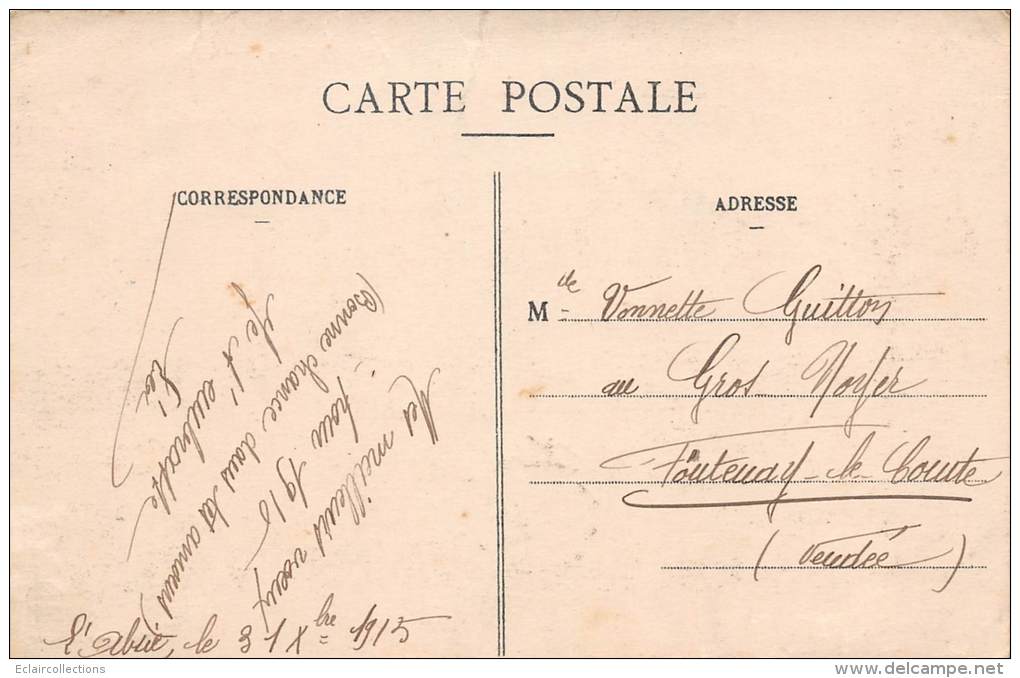 CARTE POSTALE
CORRESPONDANCE
ADRESSE
Mes meilleurs voeux
pour 1916
(Bonne chance dans tes amours)
Je t'embrasse
L'Absie, le 31 Xbre 1915
Mlle Vonnette Guitton
au Gros Noyer
Fontenay-le-Comte
(Vendée)
Eclaircollections
delcampe.net